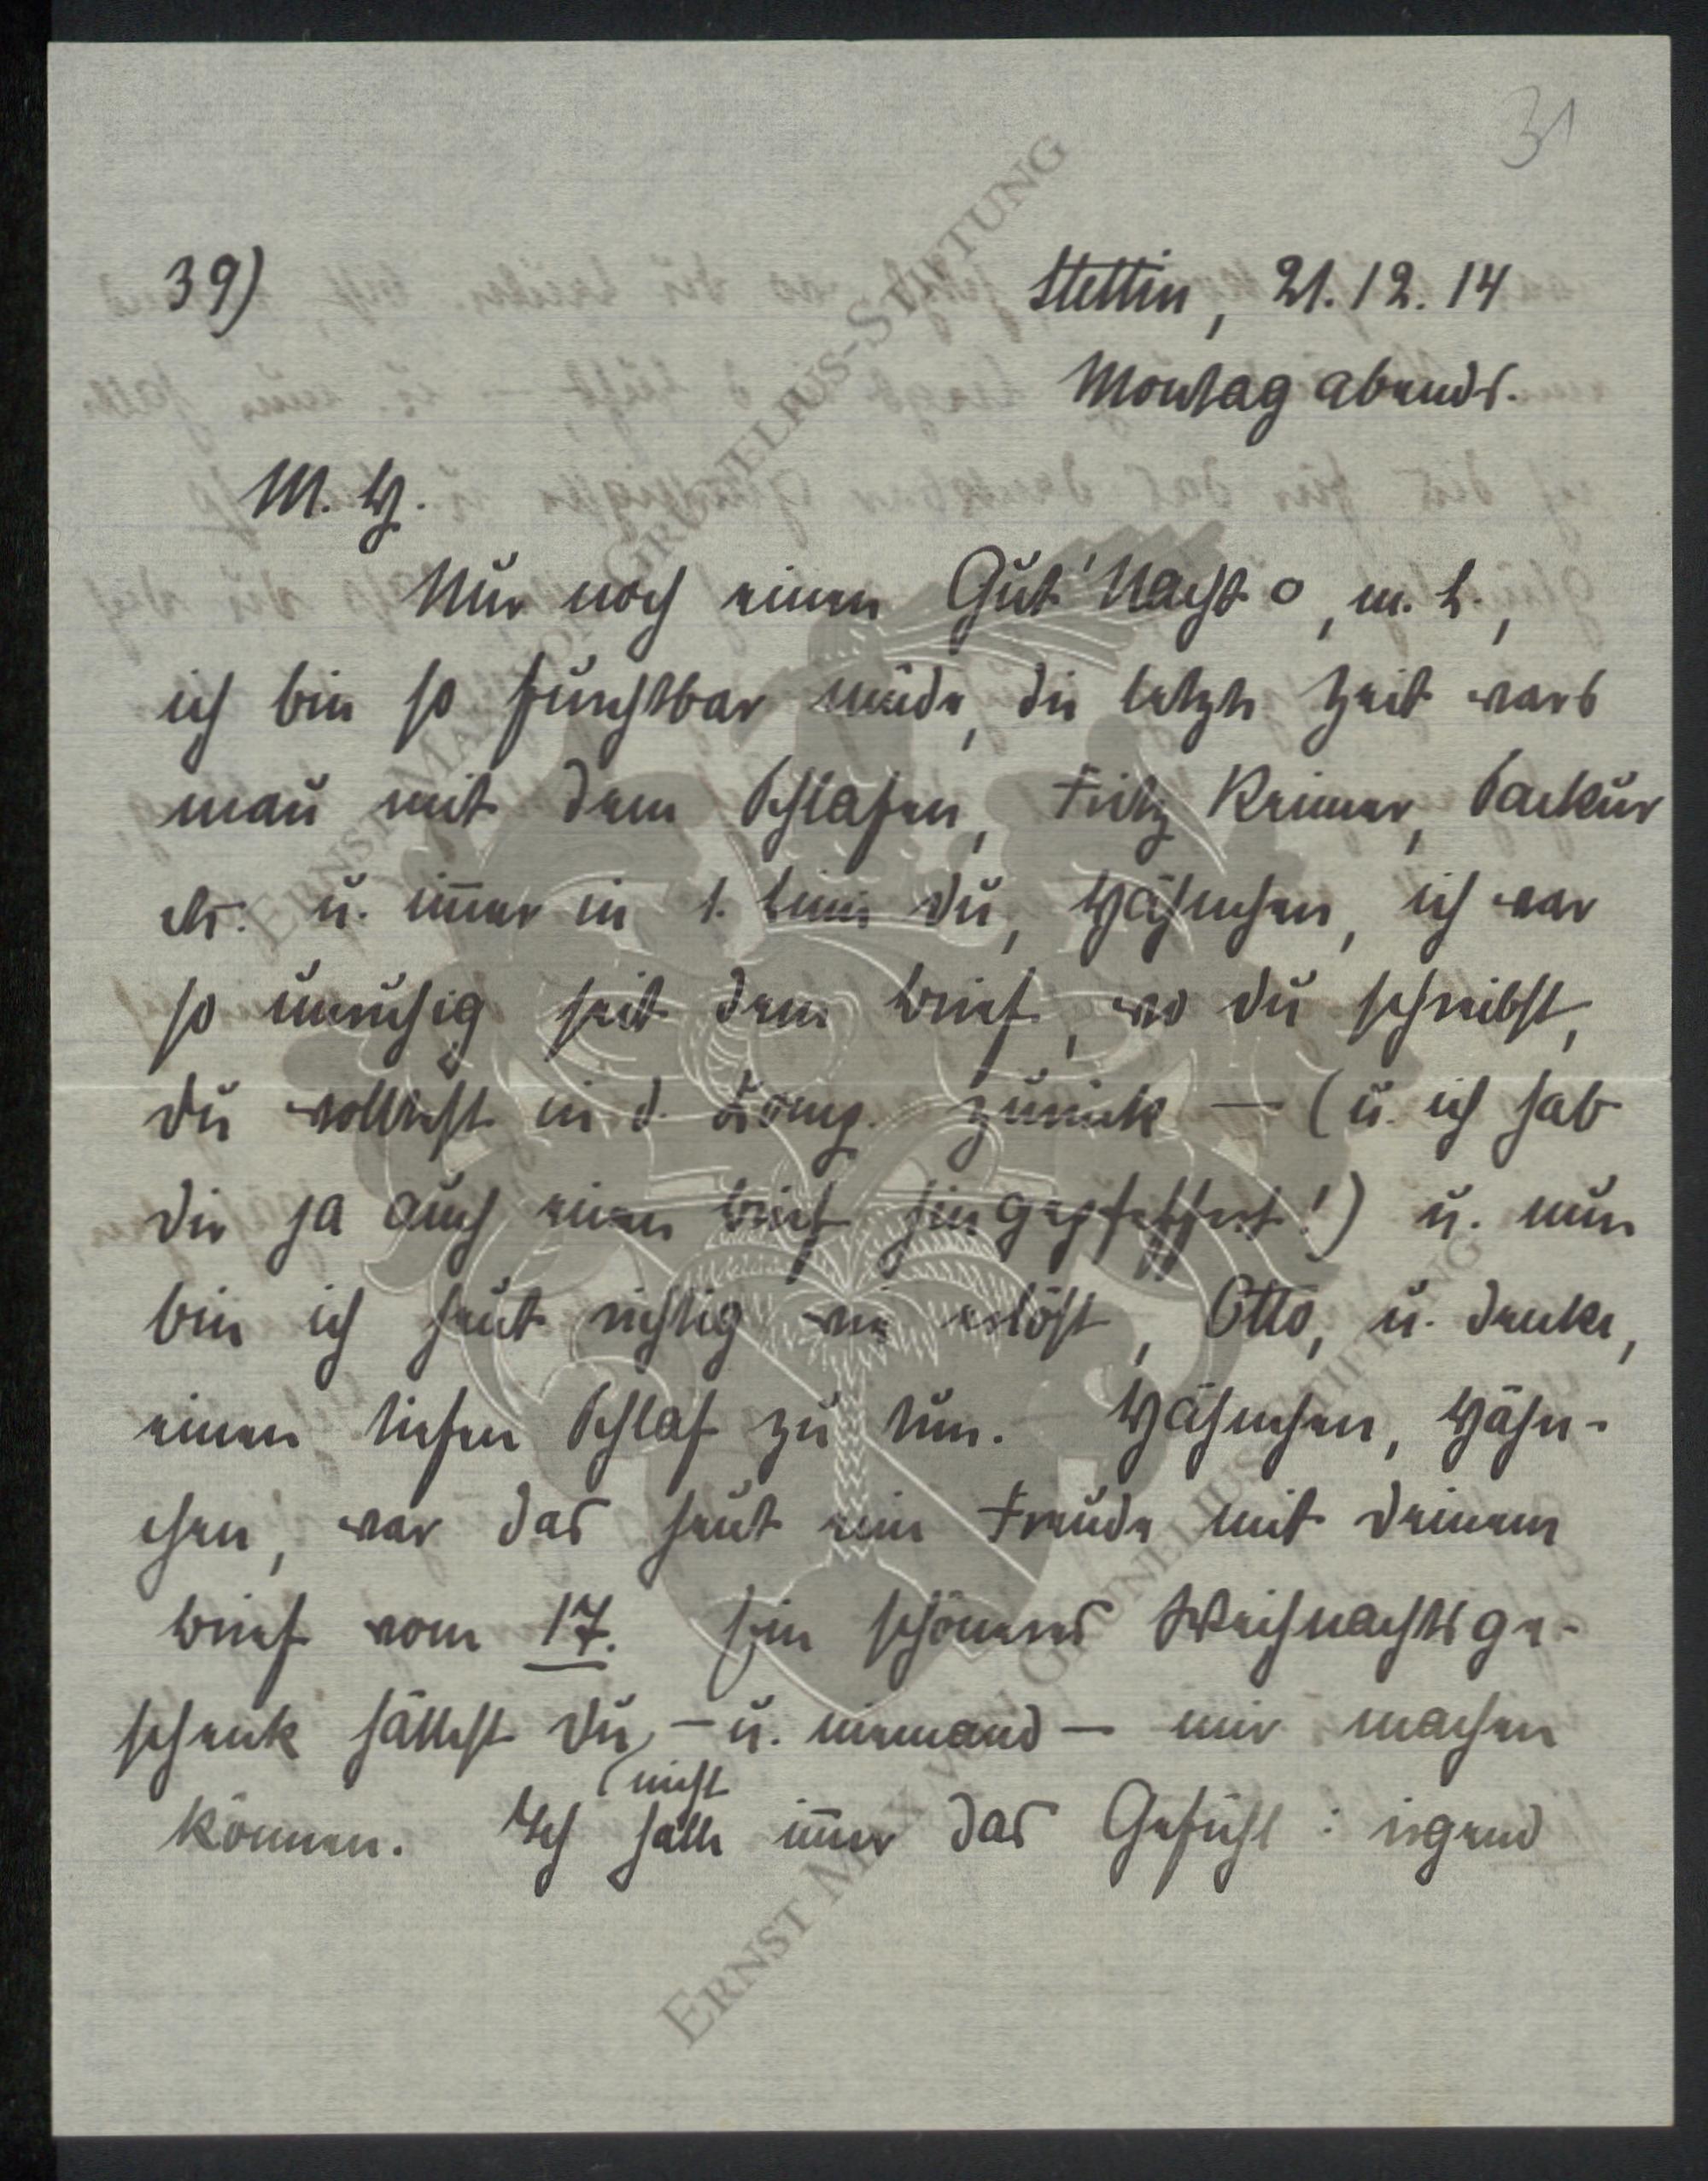 31
39)
Stettin, 21.12.14
Montag abends.
M. H.
Nur noch einen Gut' Nacht o, m. L.,
ich bin so furchtbar müde, die letzte Zeit wars
mau mit dem Schlafen, Fritz Reimer, Packur
etc. u. im̄er in 1. Linie Du, Hähnchen, ich war
so unruhig seit dem Brief, wo Du schreibst,
Du wolltest in d. Komp. zurück — (u. ich hab
Dir ja auch einen Brief hingepfeffert!) u. nun
bin ich heut richtig wie erlöst, Otto, u. denke,
einen tiefen Schlaf zu tun. Hähnchen, Hähn-
chen, war das heut eine Freude mit Deinem
Brief vom 17. Ein schöneres Weihnachtsge-
schenk hättest Du, – u. niemand – mir machen
können. Ich hatte im̄er das Gefühl: irgend
nicht
ERNST MAX VON GRUNELIUS-STIFTUNG
ERNST MAX VON GRUNELIUS-STIFTUNG